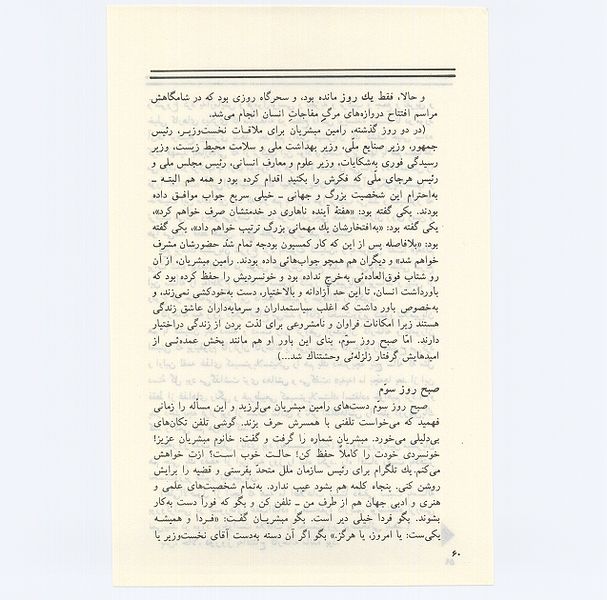 و حالا، فقط یك روز مانده بود، و سحرگاه روزی بود که در شامگاهش
مراسم افتتاح دروازه‌های مرگ مفاجات انسان انجام می‌شد.
(در دو روز گذشته، رامین مبشریان برای ملاقات نخست‌وزیر، رئیس
جمهور، وزیر صنایع ملّی، وزیر بهداشت ملی و سلامت محیط زیست، وزیر
رسیدگی فوری به‌شکایات، وزیر علوم و معارف انسانی، رئیس مجلس ملی و
رئیس هرجای ملّی که فکرش را بکنید اقدام کرده بود و همه هم البته ـ
به‌احترام این شخصیت بزرگ و جهانی ـ خیلی سریع جواب موافق داده
بودند. یکی گفته بود: «هفتهٔ آینده ناهاری در خدمتشان صرف خواهم کرد»،
یکی گفته بود: «به‌افتخارشان یك مهمانی بزرگ ترتیب خواهم داد»، یکی گفته
بود: «بلافاصله پس از این که کار کمسیون بودجه تمام شد حضورشان مشرف
خواهم شد» و دیگران هم همچو جواب‌هائی داده بودند. رامین مبشریان، از آن
رو شتاب فوق‌العاده‌ئی به‌خرج نداده بود و خونسردیش را حفظ کرده بود که
باورداشت انسان، تا این حد آزادانه و بالاختیار، دست به‌خودکشی نمی‌زند، و
به‌خصوص باور داشت که اغلب سیاستمداران و سرمایه‌داران عاشق زندگی
هستند زیرا امکانات فراوان و نامشروعی برای لذت بردن از زندگی دراختیار
دارند. امّا صبح روز سوّم، بنای این باور او هم مانند بخش عمده‌ئی از
امیدهایش گرفتار زلزله‌ئی وحشتناك شد...)
صبح روز سوّم
صبح روز سوّم دست‌های رامین مبشریان می‌لرزید و این مسأله را زمانی
فهمید که می‌خواست تلفنی با همسرش حرف بزند. گوشی تلفن تکان‌های
بی‌دلیلی می‌خورد. مبشریان شماره را گرفت و گفت: خانوم مبشریان عزیز!
خونسردی خودت را کاملاً حفظ کن! حالت خوب است؟ ازت خواهش
می‌کنم یك تلگرام برای رئیس سازمان ملل متحدّ بفرستی و قضیه را برایش
روشن کنی. پنجاه کلمه هم بشود عیب ندارد. به‌تمام شخصیت‌های علمی و
هنری و ادبی جهان هم از طرف من ـ تلفن کن و بگو که فوراً دست به‌کار
بشوند. بگو فردا خیلی دیر است. بگو مبشریان گفت: «فردا و همیشه
یکی‌ست: یا امروز، یا هرگز.» بگو اگر آن دسته به‌دست آقای نخست‌وزیر یا
۶۰